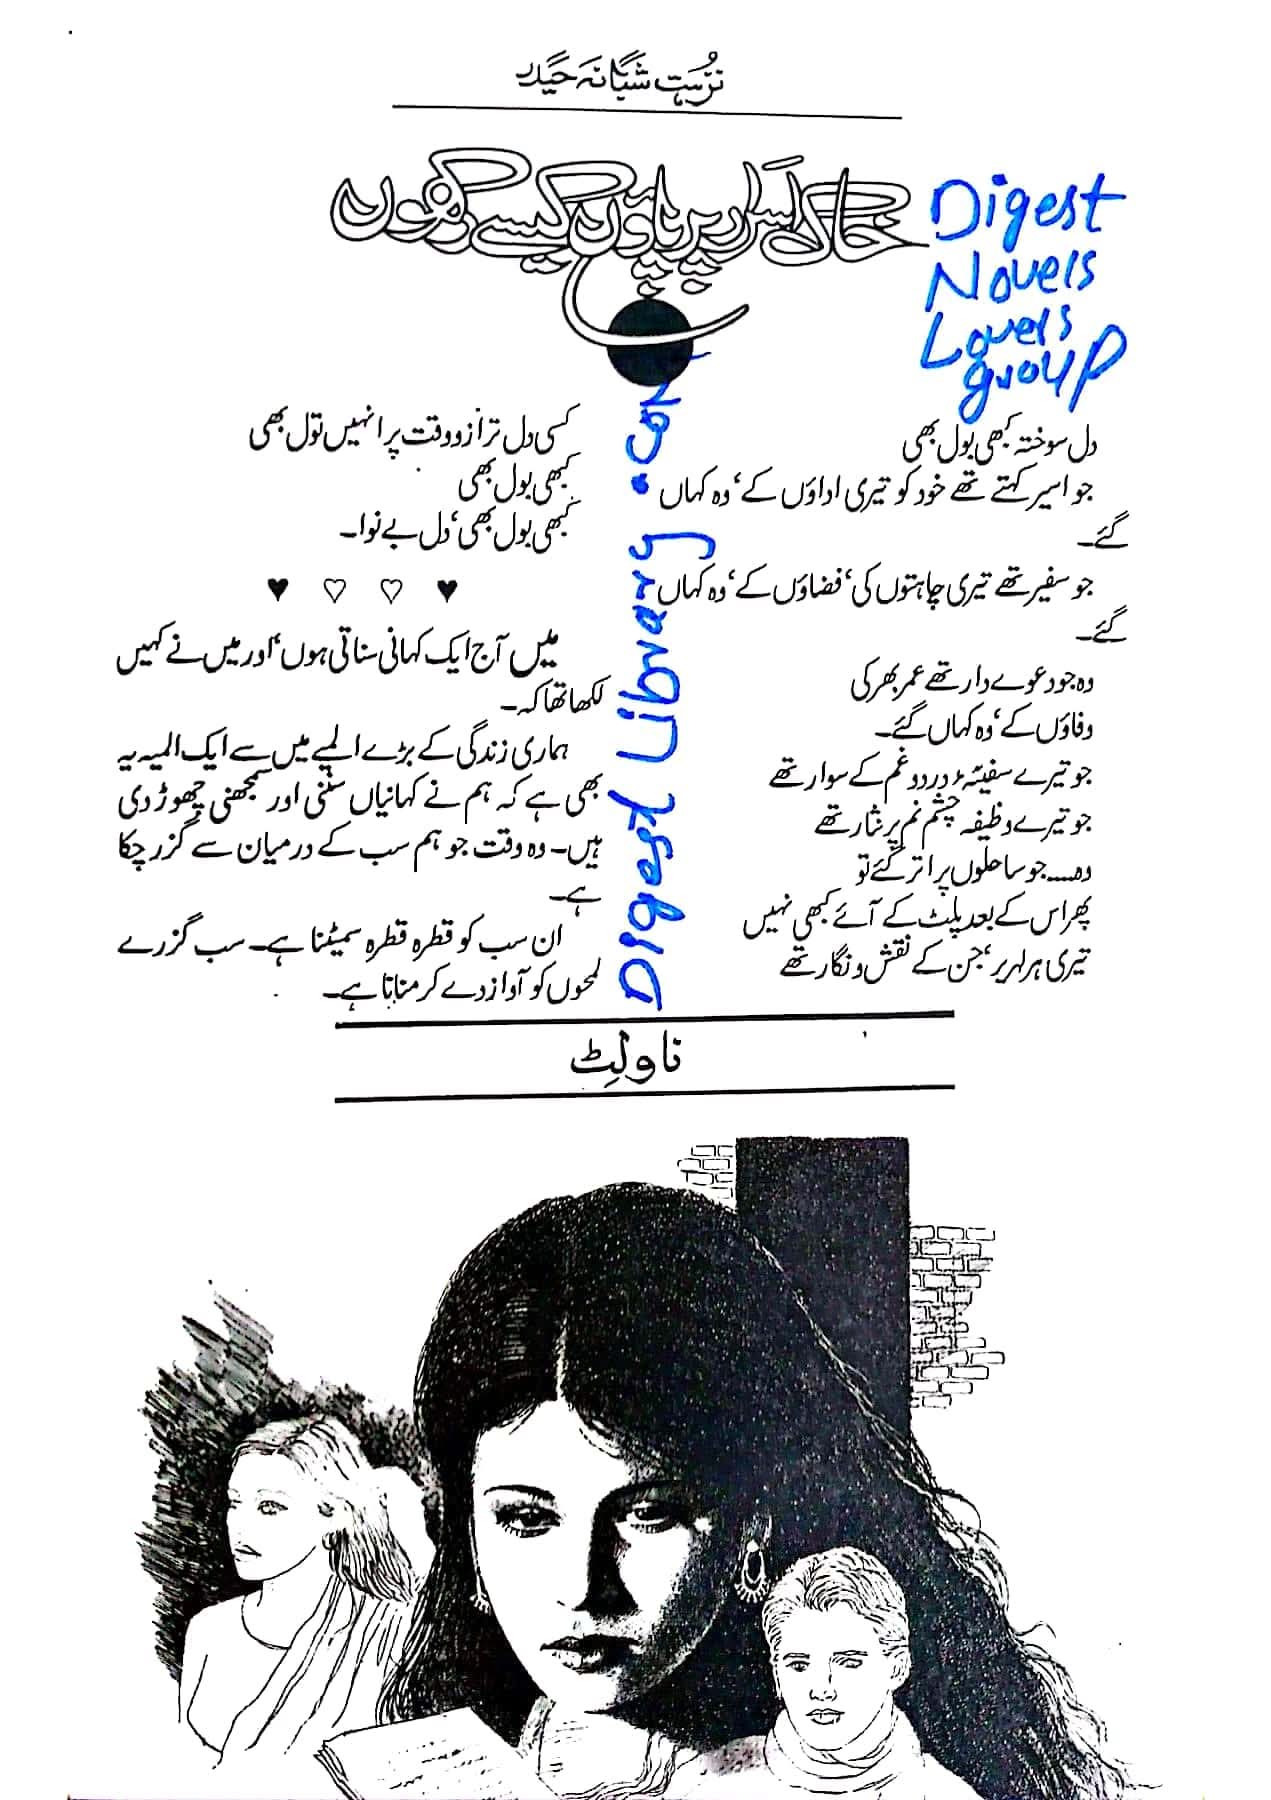 نزہت شبانہ حیدر
خاک اسرار پر پاؤں کیسے رکھوں
Digest
Novels
Lovers
group
دل سوختہ کبھی بول بھی
جو اسیر کہتے تھے خود کو تیری اداؤں کے‘ وہ کہاں
گئے۔
جو سفیر تھے تیری چاہتوں کی‘ فضاؤں کے‘ وہ کہاں
گئے۔
وہ جو دعوے دار تھے عمر بھر کی
وفاؤں کے‘ وہ کہاں گئے۔
جو تیرے سفینۂ درد و غم کے سوار تھے
جو تیرے وظیفہ چشم نم پر نثار تھے
وہ..... جو ساحلوں پر اتر گئے تو
پھر اس کے بعد پلٹ کے آئے کبھی نہیں
تیری ہر لہر پر‘ جن کے نقش و نگار تھے
کسی دل ترازو وقت پر انہیں تول بھی
کبھی بول بھی
کبھی بول بھی‘ دل بے نوا۔
♥ ♡ ♡ ♥
میں آج ایک کہانی سناتی ہوں‘ اور میں نے کہیں
لکھا تھا کہ۔
ہماری زندگی کے بڑے المیے میں سے ایک المیہ یہ
بھی ہے کہ ہم نے کہانیاں سننی اور سمجھنی چھوڑ دی
ہیں۔ وہ وقت جو ہم سب کے درمیان سے گزر چکا
ہے۔
ان سب کو قطرہ قطرہ سمیٹنا ہے۔ سب گزرے
لمحوں کو آواز دے کر منانا ہے۔
Digest Library.com
ناولٹ